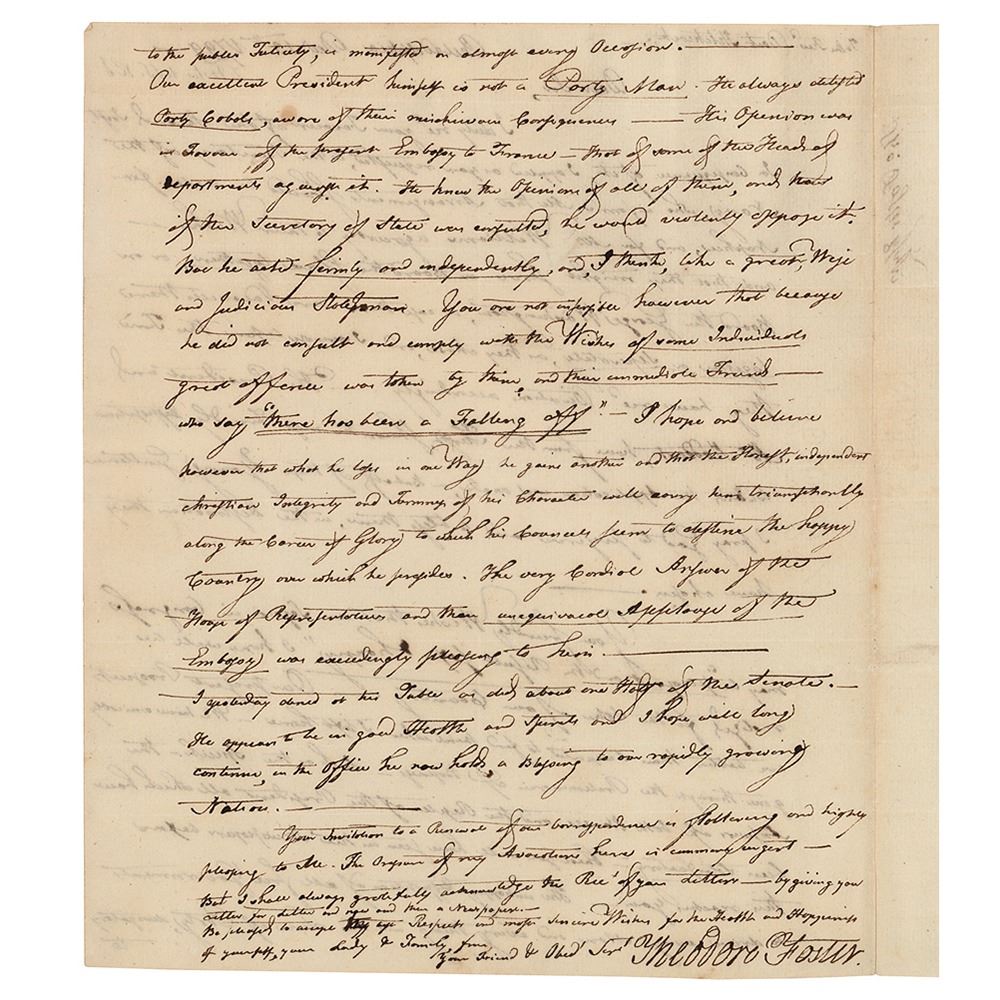 to the public Felicity, is manifested on almost every Occasion. —
Our excellent President himself is not a Party Man. He always detested
Party Cabals, aware of their mischievous Consequences — His Openion was
in Favour of the present Embassy to France — that of some of the Heads of
Departments against it. He knew the Opinions of all of them, and that
if the Secretary of State was consulted, he would violently oppose it.
But he acted firmly and independently, and, I think, like a great, Wise
and Judicious Statesman. You are not insensible however that because
he did not consult and comply with the Wishes of some Individuals
great offence was taken by them and their immediate Friends —
who say "there has been a Falling off" — I hope and believe
however that what he loses in one Way he gains another and that the Honest, independent
christian Integrity and Firmness of his Character will carry him triumphantly
along the Career of Glory to which his Councels seem to destine the happy
Country over which he presides. The very Cordial Answer of the
House of Representatives and their unequivocal Applause of the
Embassy was exceedingly pleasing to him. —
I yesterday dined at his Table as did about one Half of the Senate. —
He appears to be in good Health and Spirits and I hope will long
continue, in the Office he now holds a Blessing to our rapidly growing
Nation. —
Your Invitation to a Renewal of our Correspondence is flattering and highly
pleasing to Me. The of my Avocations here is urgent —
But I shall always gratefully acknowledge the Rect of your Letters — by giving you
Letter for Letter and now and then a Newspaper. —
Be pleased to accept my Respects and most sincere Wishes for the Health and Happiness
of yourself, your Lady & Family from
Your Friend & Obed Servt Theodore Foster.